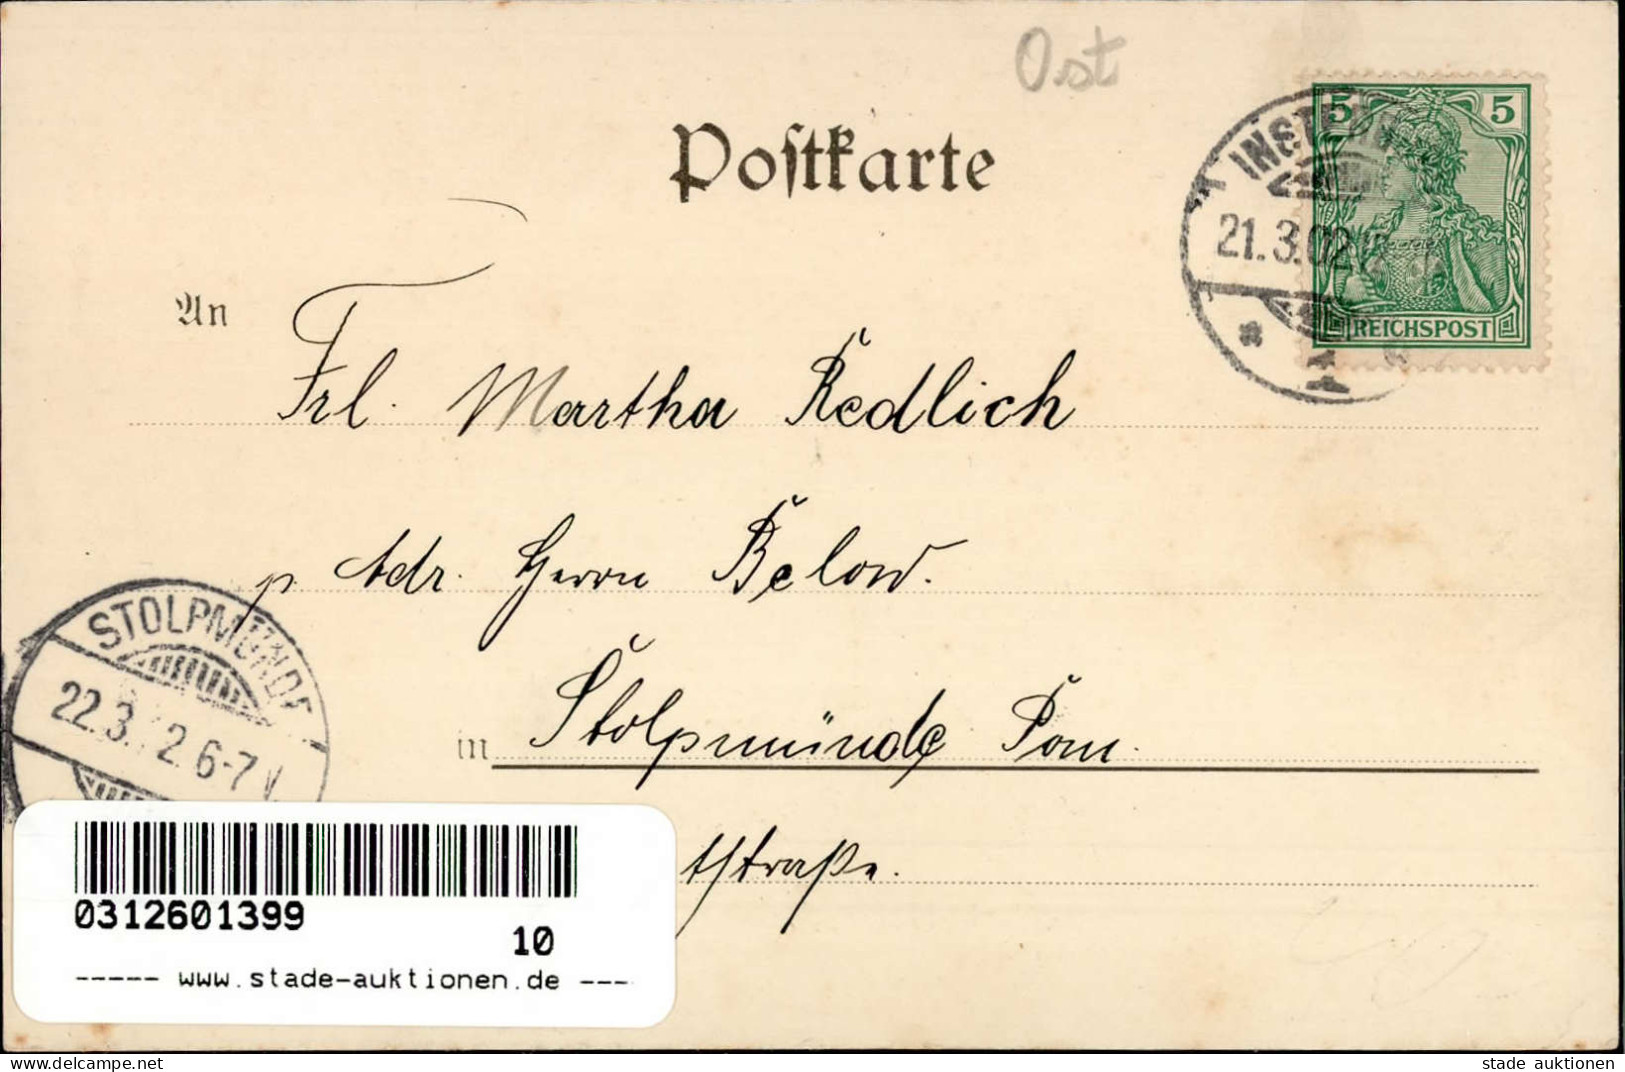 Ost
Postkarte
5 5
21.3.02
REICHSPOST
An
Frl. Martha Redlich
p. Adr. Herrn Below.
STOLPMÜNDE
22.3. 2.6-7V.
in Stolpmünde Pom.
0312601399
10
----- www.stade-auktionen.de ---
stade auktionen
www.delcampe.net